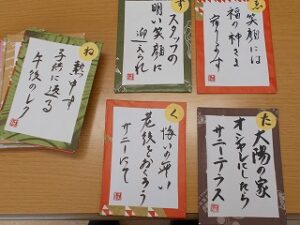 ゑ
笑顔には
福の神さま
宿ります
す
スタッフの
明い笑顔に
迎えられ
ね
熱中す
に
午後のレク
た
太陽の家
オシャレにしたら
サニーテラス
く
悔いのない
老後をおくろう
サニーにて